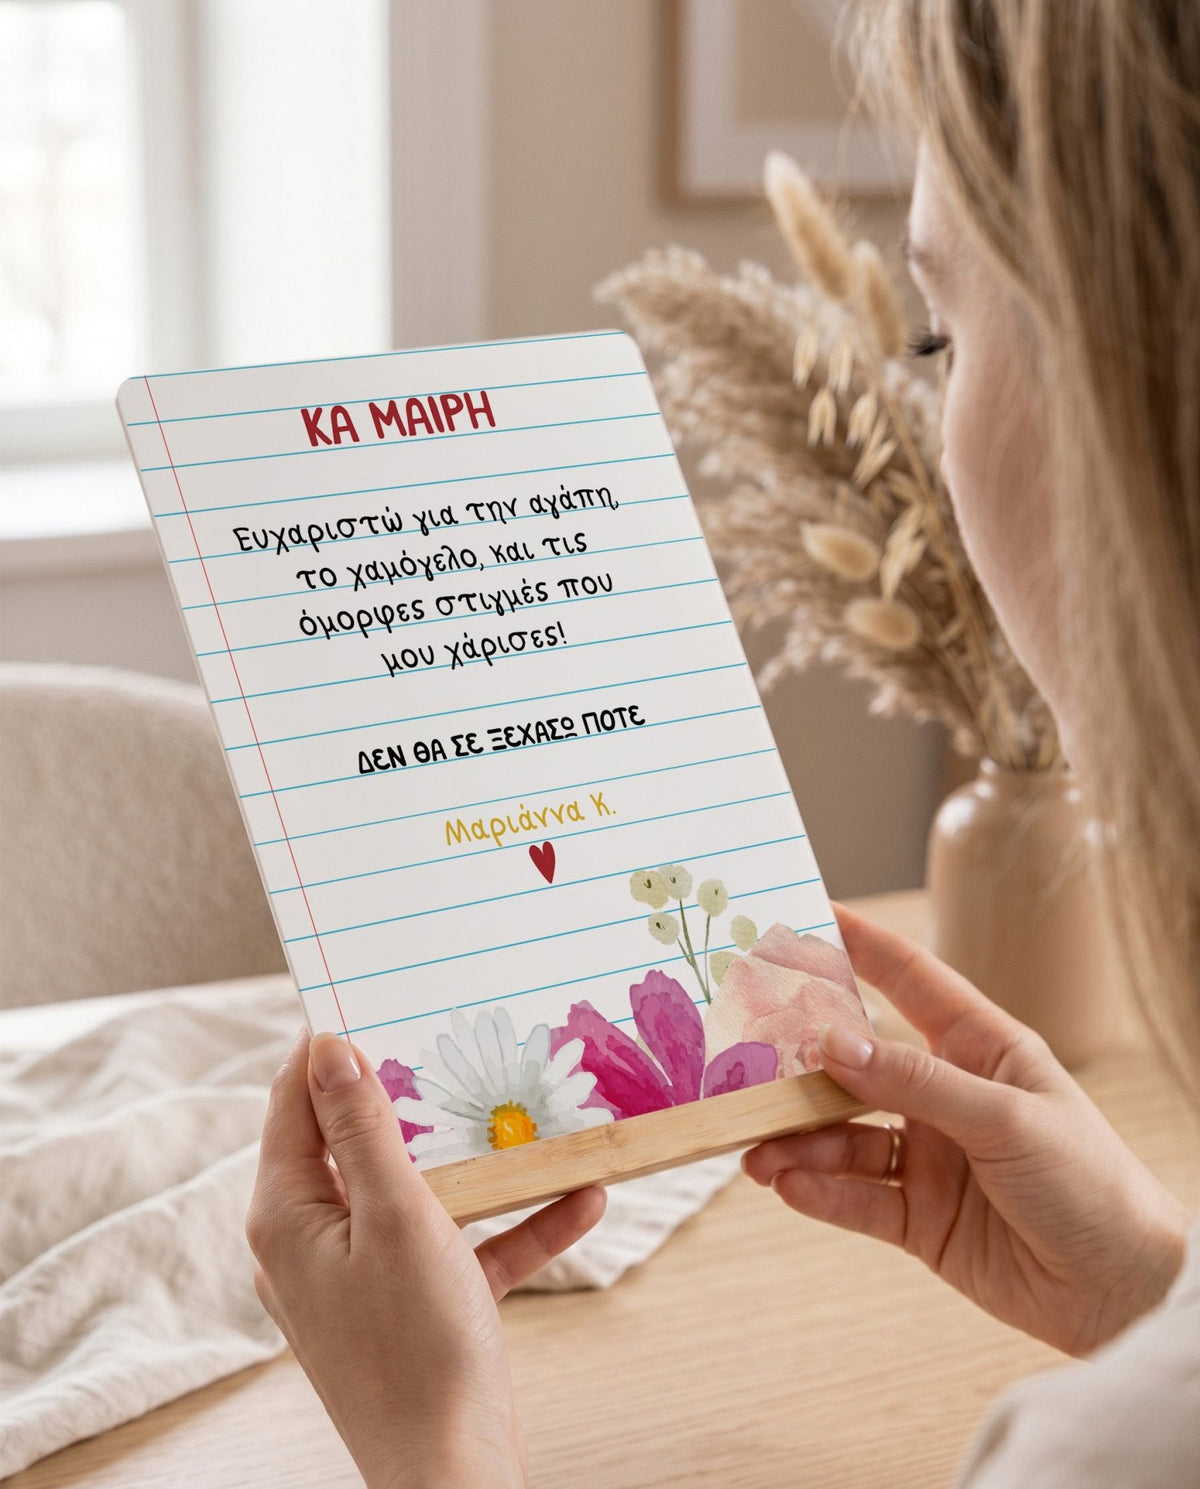 ΚΑ ΜΑΙΡΗ
Ευχαριστώ για την αγάπη,
το χαμόγελο, και τις
όμορφες στιγμές που
μου χάρισες!
ΔΕΝ ΘΑ ΣΕ ΞΕΧΑΣΩ ΠΟΤΕ
Μαριάννα Κ.